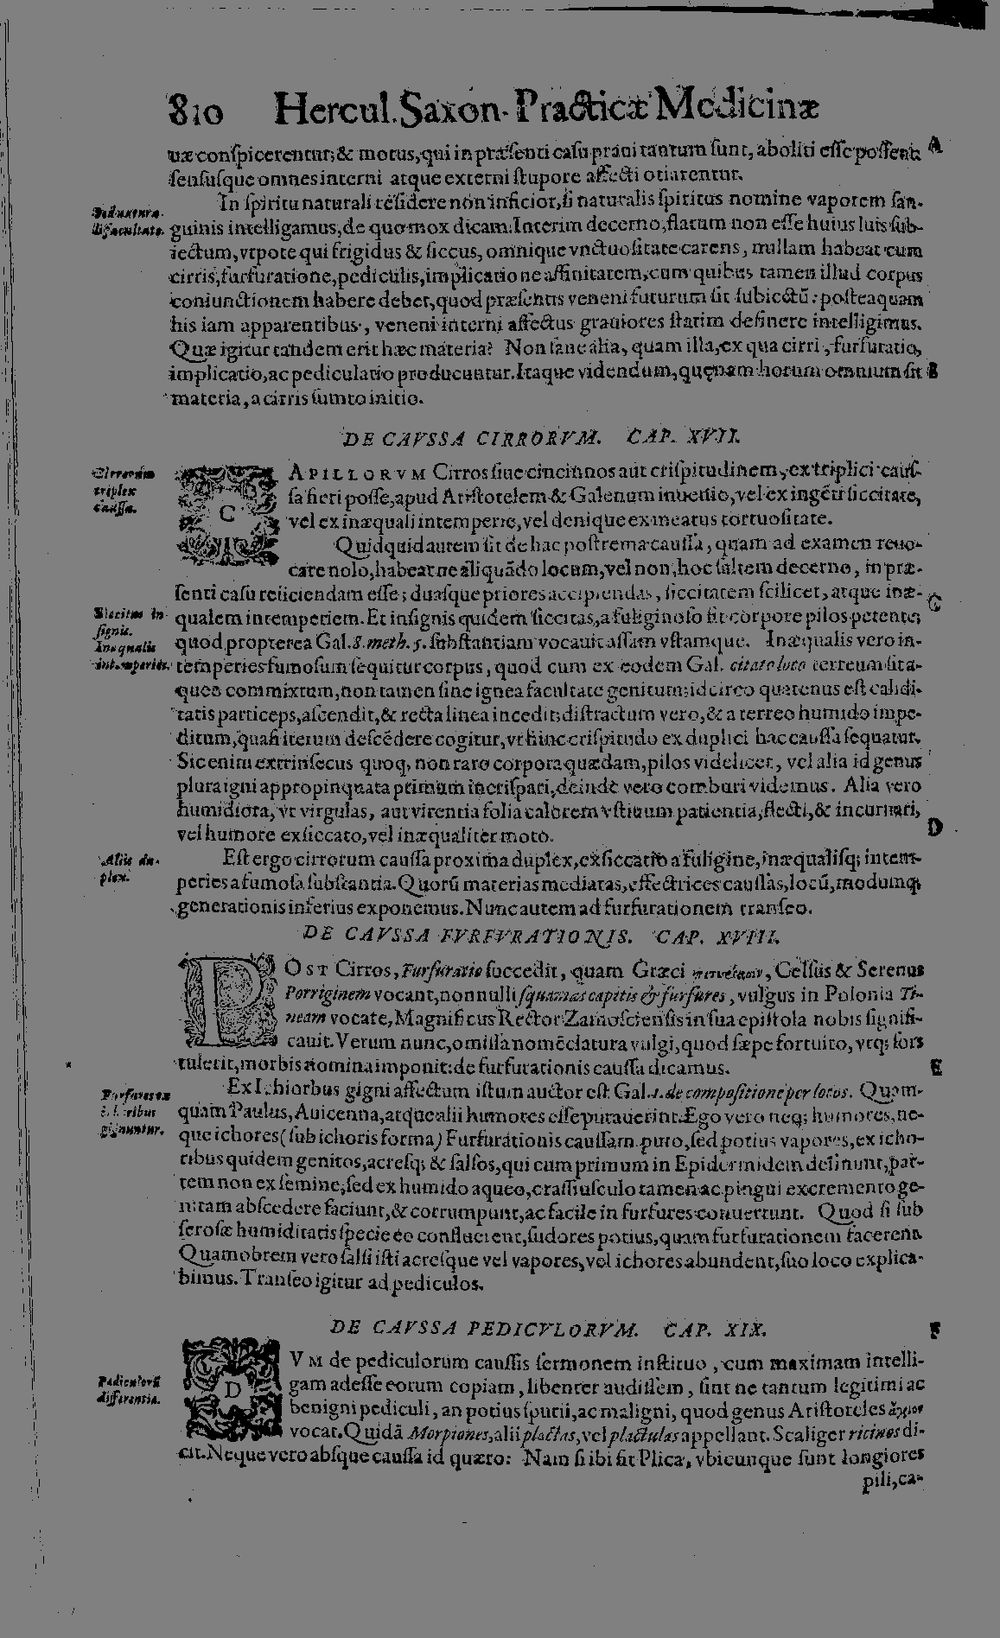 810 Hercul. Saxon. Practicæ Medicinæ
uæ conſpicerentur; & motus, qui in præſenti caſu praui tantum ſunt, aboliti eſſe poſſent: A
ſenſuſque omnes interni atque externi ſtupore affecti otiarentur.
In ſpiritu naturali reſidere non inficior, ſi naturalis ſpiritus nomine vaporem ſan-
guinis intelligamus, de quo mox dicam. Interim decerno, flatum non eſſe huius luis ſub-
iectum, vtpote qui frigidus & ſiccus, omnique vnctuoſitate carens, nullam habeat cum
cirris, furfuratione, pediculis, implicatione affinitatem, cum quibus tamen illud corpus
coniunctionem habere debet, quod præſentis veneni futurum ſit ſubiectũ: poſteaquam
his iam apparentibus, veneni interni affectus grauiores ſtatim deſinere intelligimus.
Quæ igitur tandem erit hæc materia? Non ſane alia, quam illa, ex qua cirri, furfuratio,
implicatio, ac pediculatio producuntur. Itaque videndum, quęnam horum omnium ſit B
materia, a cirris ſumto initio.
DE CAVSSA CIRRORVM. CAP. XVII.
Cirrorum
triplex
cauſſa.
CAPILLORVM Cirros ſiue cincinnos aut criſpitudinem, ex triplici cauſ-
ſa fieri poſſe, apud Ariſtotelem & Galenum inuenio, vel ex ingẽti ſiccitate,
vel ex inæquali intemperie, vel denique ex meatus tortuoſitate.
Quidquid autem ſit de hac poſtrema cauſſa, quam ad examen reuo-
care nolo, habeat ne aliquãdo locum, vel non, hoc ſaltem decerno, in præ-
ſenti caſu reiiciendam eſſe; duaſque priores accipiendas, ſiccitatem ſcilicet, atque inæ- C
Siccitas in-
ſignis.
Inæqualis
intemperies.
qualem intemperiem. Et inſignis quidem ſiccitas, a fuliginoſo fit corpore pilos petente;
quod propterea Gal. 8. meth. 5. ſubſtantiam vocauit aſſam vſtamque. Inæqualis vero in-
temperies fumoſum ſequitur corpus, quod cum ex eodem Gal. citato loco terreum ſit a-
queo commixtum, non tamen ſine ignea facultate genitum; id circo quatenus eſt calidi-
tatis particeps, aſcendit, & recta linea incedit; diſtractum vero, & a terreo humido impe-
ditum, quaſi iterum deſcẽdere cogitur, vt hinc criſpitudo ex duplici hac cauſſa ſequatur.
Sic enim extrinſecus quoq; non raro corpora quædam, pilos videlicet, vel alia id genus
plura igni appropinquata primum incriſpari, deinde vero comburi videmus. Alia vero
humidiora, vt virgulas, aut virentia folia calorem vſtiuum patientia, flecti, & incuruari,
vel humore exſiccato, vel inæqualiter moto. D
Aliis du-
plex.
Eſt ergo cirrorum cauſſa proxima duplex, exſiccatio a fuligine, inæqualiſq; intem-
peries a fumoſa ſubſtantia. Quorũ materias mediatas, effectrices cauſſas, locũ, modumq;
generationis inferius exponemus. Nunc autem ad furfurationem tranſeo.
DE CAVSSA FVRFVRATIONIS. CAP. XVIII.
POST Cirros, Furfuratio ſuccedit, quam Græci, Celſus & Serenus
Porriginem vocant, nonnulli ſquamas capitis & furfures, vulgus in Polonia Ti-
neam vocate, Magnificus Rector Zamoſcienſis in ſua epiſtola nobis ſignifi-
cauit. Verum nunc, omiſſa nomẽclatura vulgi, quod ſæpe fortuito, vtq; fors
tulerit, morbis nomina imponit: de furfurationis cauſſa dicamus. E
Furfures ex
ichoribus
gignuntur.
Ex Ichoribus gigni affectum iſtum auctor eſt Gal. 1. de compoſitione per locos. Quam-
quam Paulus, Auicenna, atque alii humores eſſe putauerint. Ego vero neq; humores, ne-
que ichores (ſub ichoris forma) Furfurationis cauſſam puto, ſed potius vapores, ex icho-
ribus quidem genitos, acreſq; & ſalſos, qui cum primum in Epidermidem deſinunt, par-
tem non ex ſemine, ſed ex humido aqueo, craſſiuſculo tamen ac pingui excremento ge-
nitam abſcedere faciunt, & corrumpunt, ac facile in furfures conuertunt. Quod ſi ſub
ſeroſæ humiditatis ſpecie eo confluerent, ſudores potius, quam furfurationem facerent.
Quamobrem vero ſalſi iſti acreſque vel vapores, vel ichores abundent, ſuo loco explica-
bimus. Tranſeo igitur ad pediculos.
DE CAVSSA PEDICVLORVM. CAP. XIX. F
Pediculorũ
differentia.
DVM de pediculorum cauſſis ſermonem inſtituo, cum maximam intelli-
gam adeſſe eorum copiam, libenter audiſſem, ſint ne tantum legitimi ac
benigni pediculi, an potius ſpurii, ac maligni, quod genus Ariſtoteles ἄγριον
vocat. Quidã Morpiones, alii plactas, vel plactulas appellant. Scaliger ricinos di-
cit. Neque vero abſque cauſſa id quæro: Nam ſi ibi fit Plica, vbicunque ſunt longiores
pili, ca-